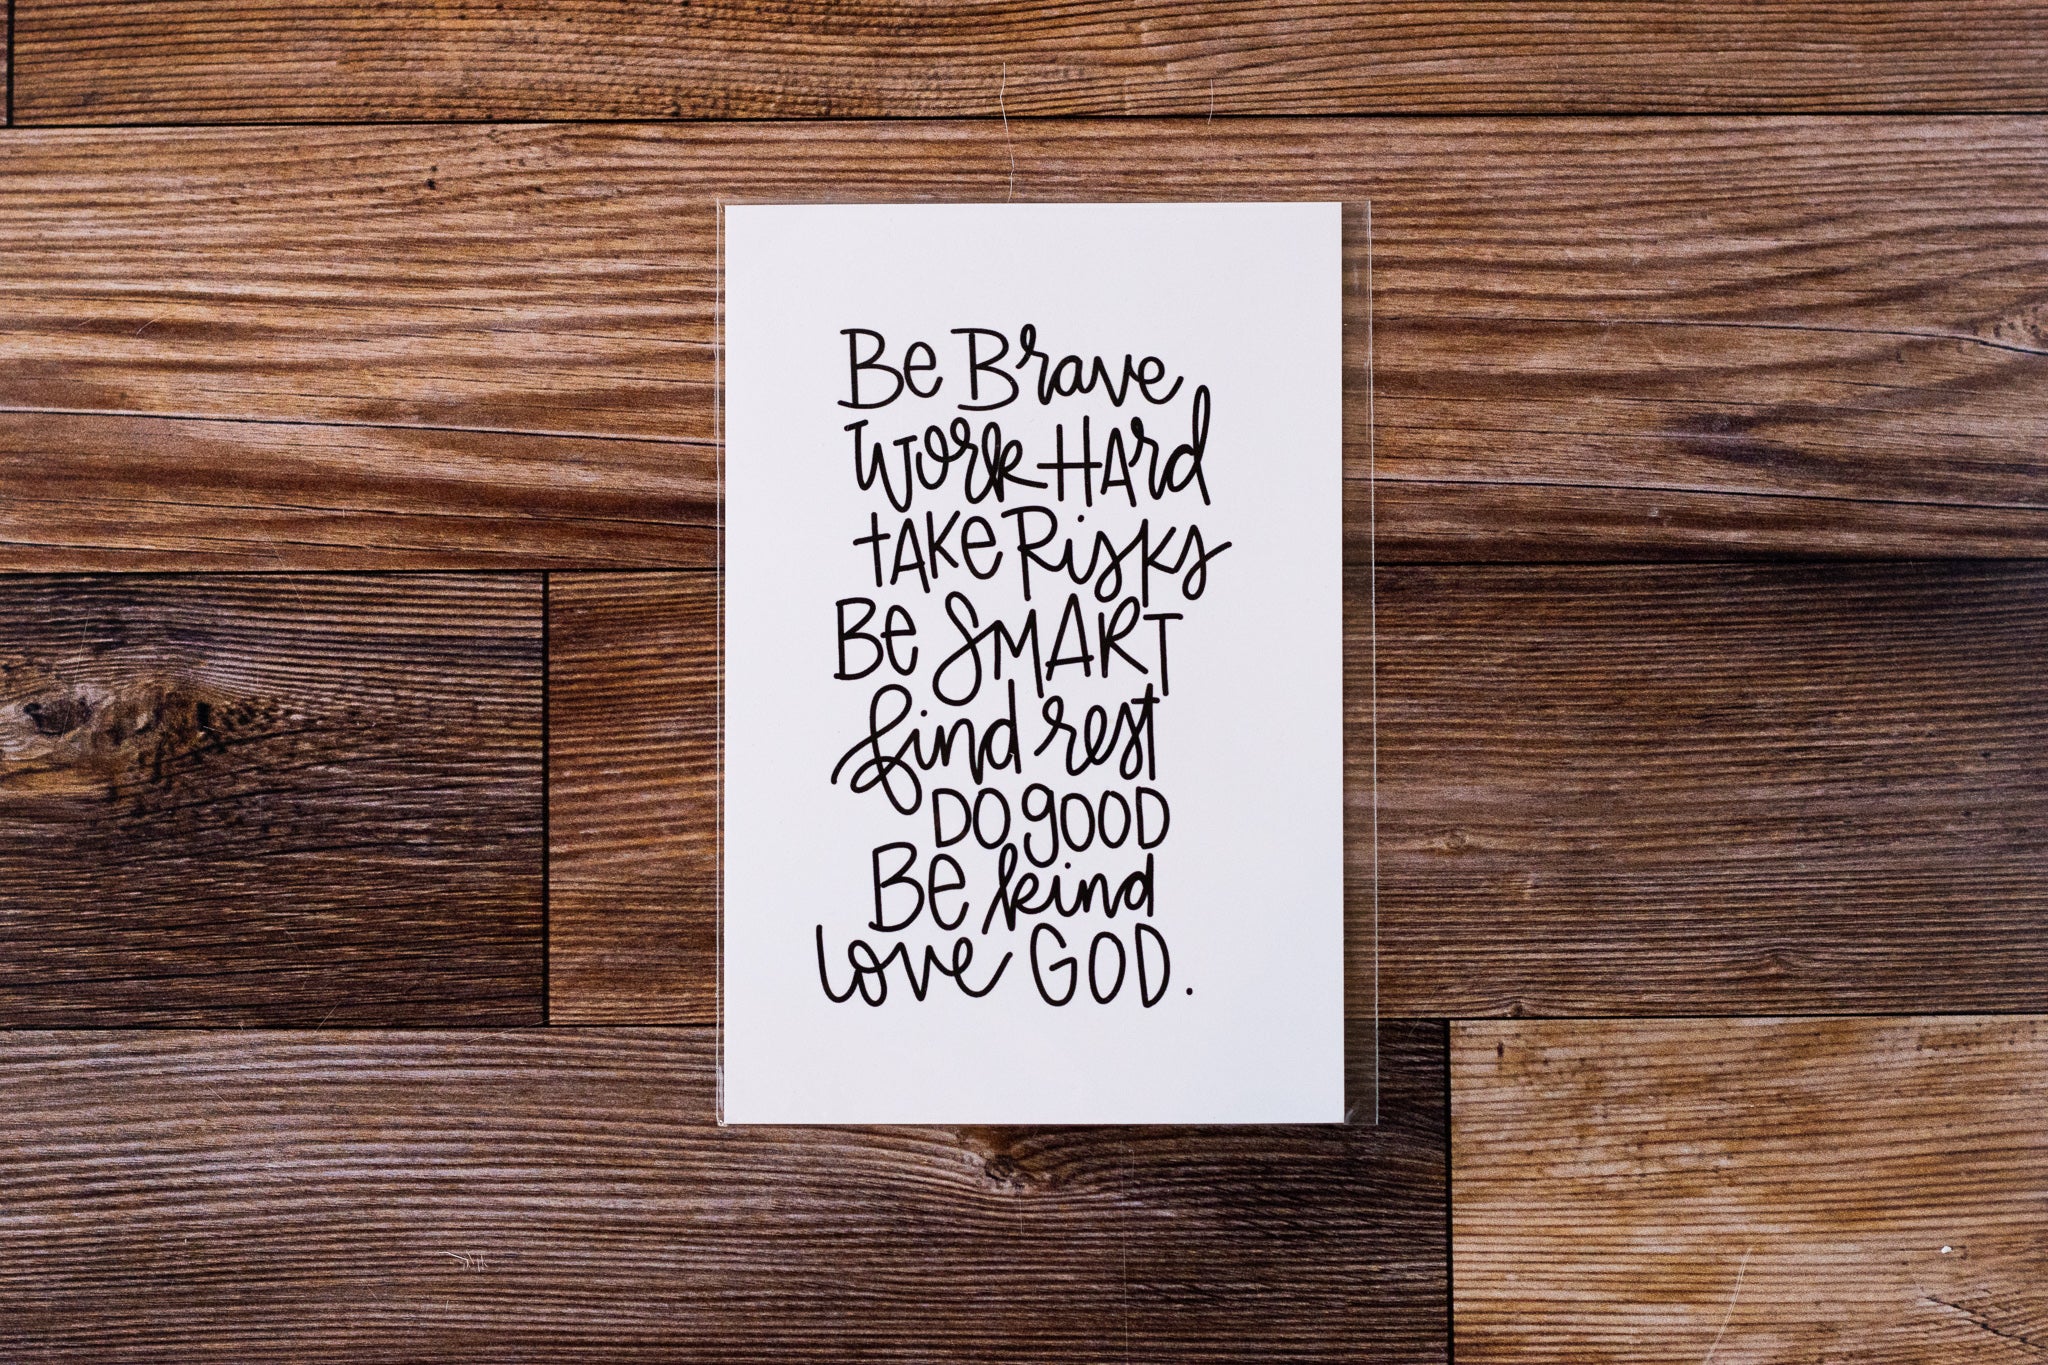 Be Brave
Work Hard
take Risks
Be SMART
find rest
DO gOOD
Be kind
love GOD.